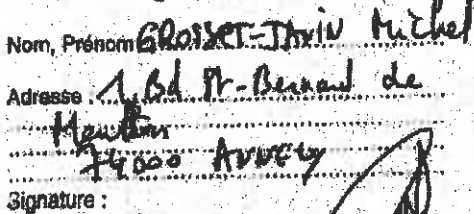 Nom, Prénom GROSSET-JANIN Michel
Adresse : 1, Bd St-Bernard de
Menthon
74000 ANNECY
Signature :